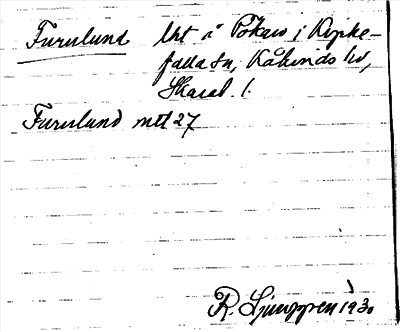 Furulund lht å Påkas i Kyrke-
falla sn, Kåkinds hd,
Skarab. l.
Furulund mtl 27
R. Ljunggren 1930